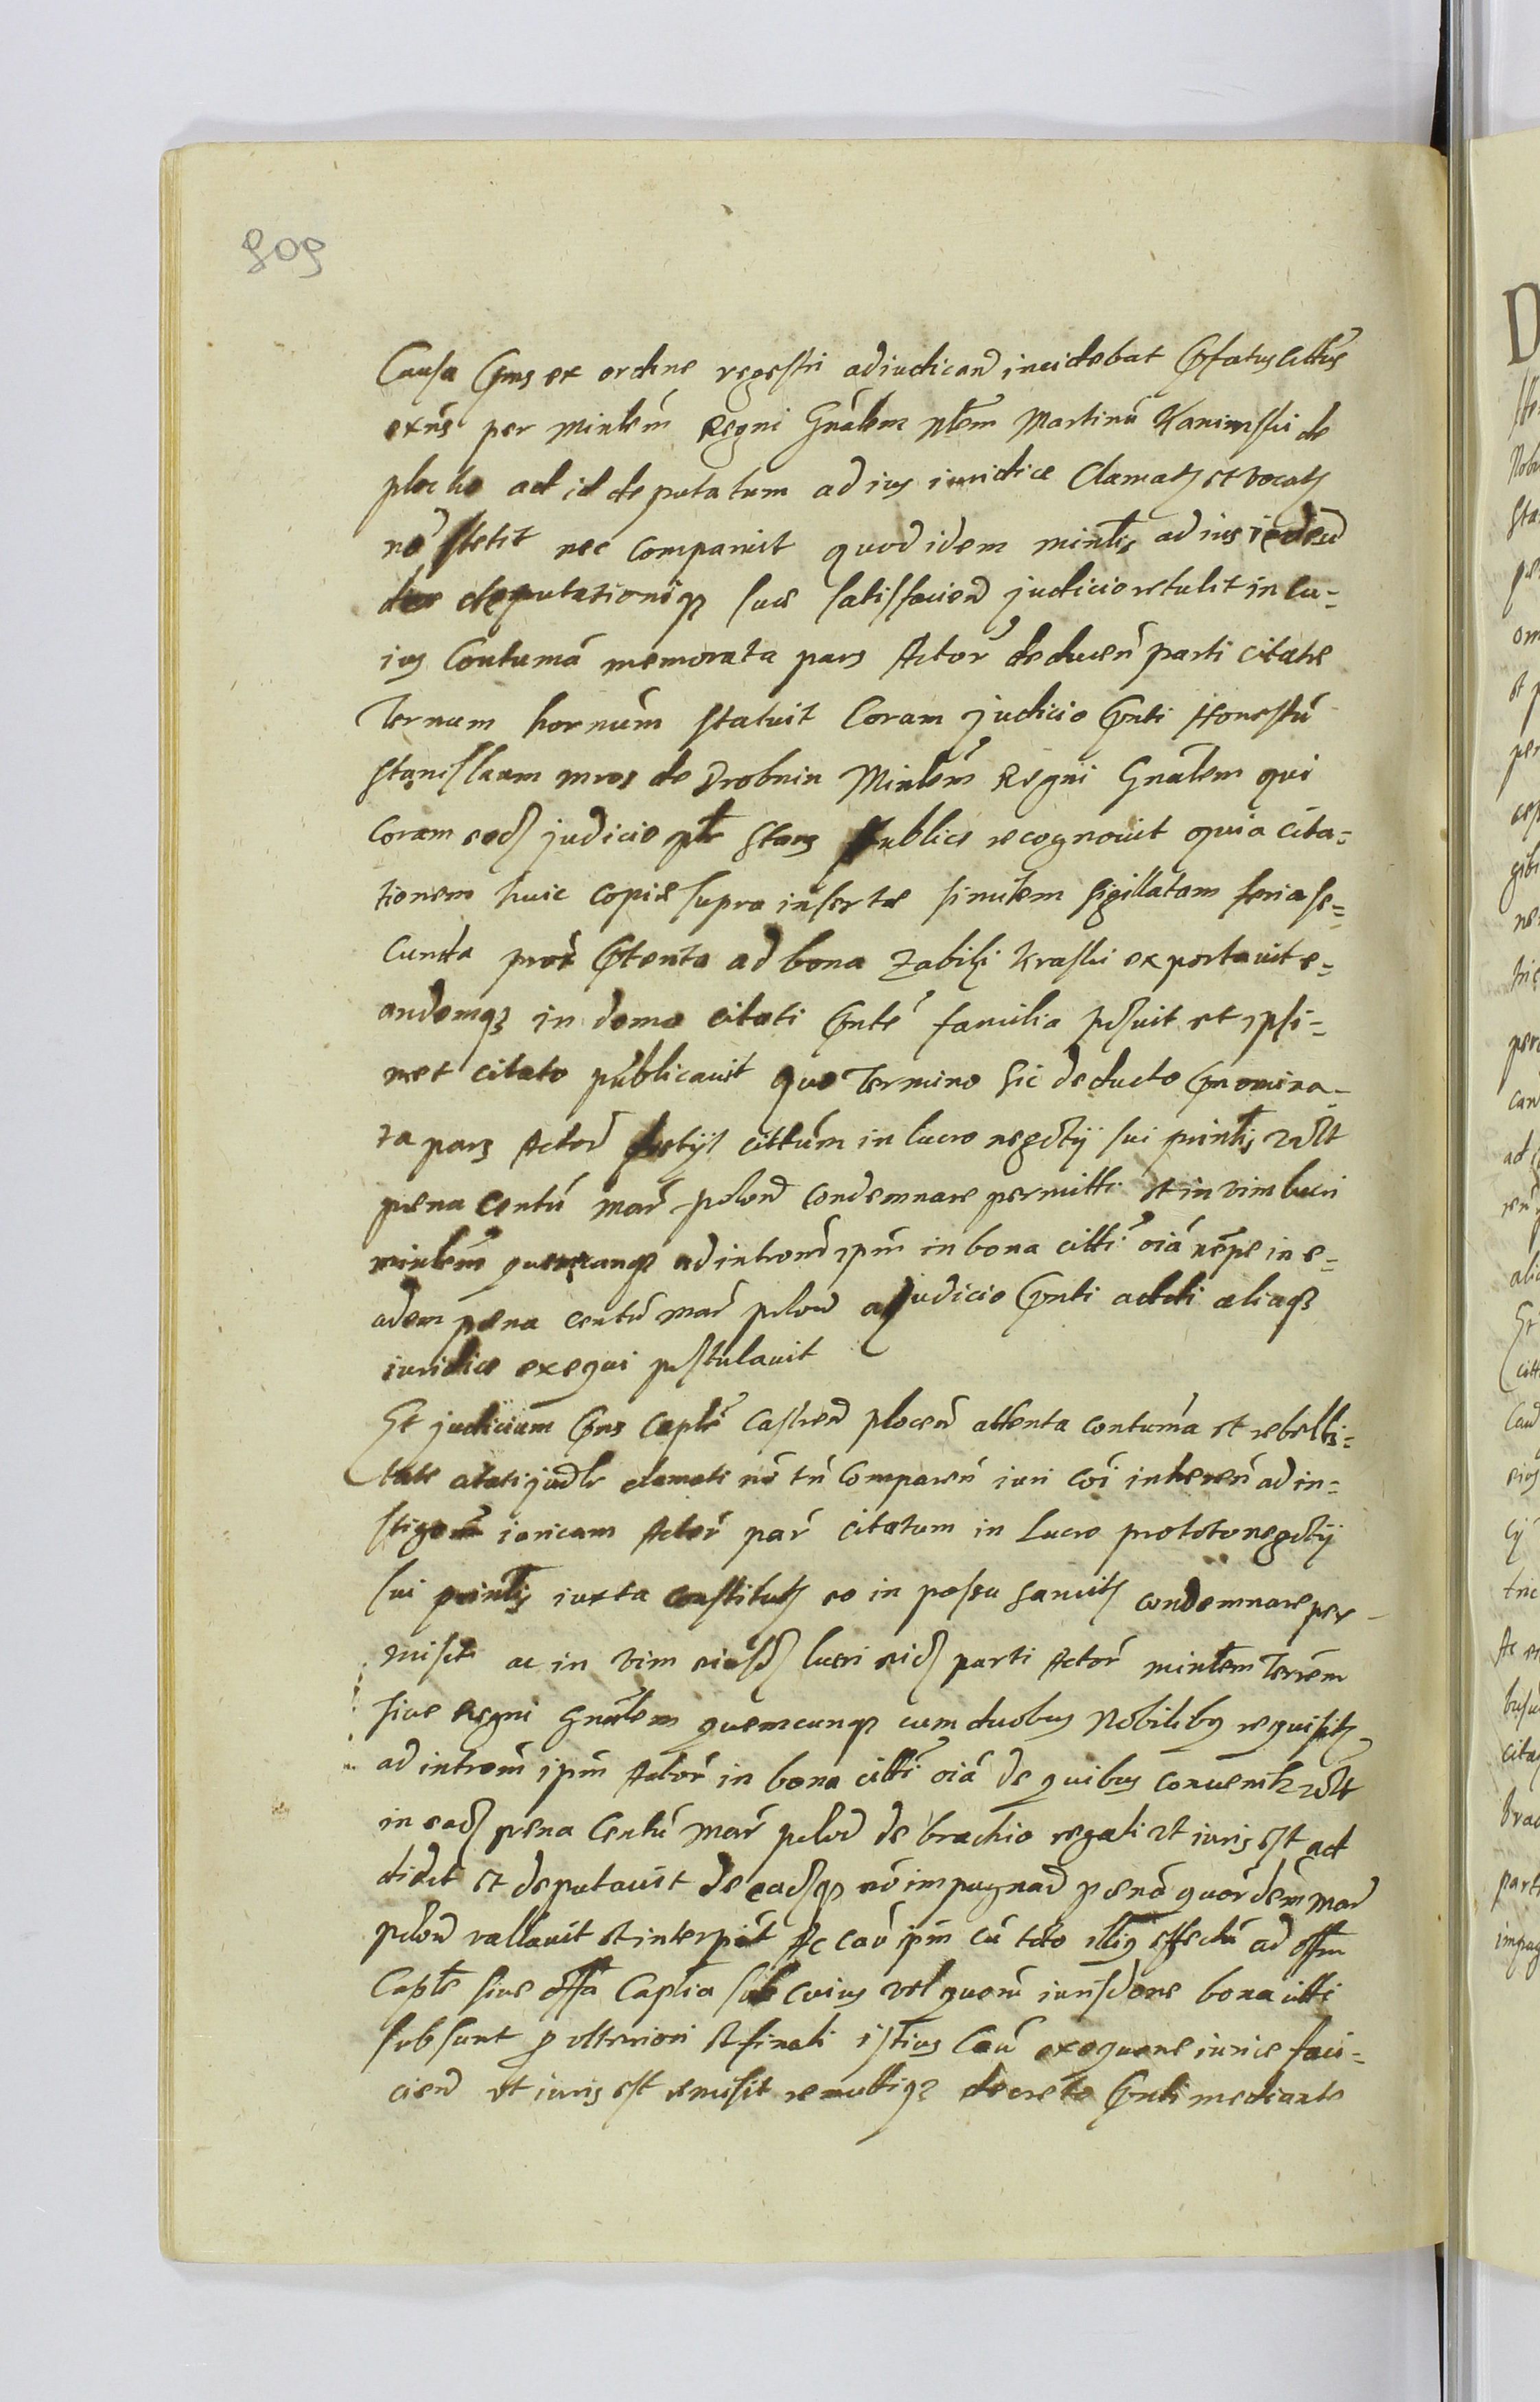 809
Causa Pns ex ordine regestri adiudicand incidebat Pfatus cittus
exns per Minlem Regni Gnalem Nlem Martinu Kaninski de
plocko ad id deputatum ad ius iuridice Clamats et vocats
no stetit nec comparuit quod idem minlis ad ius
deputationiq suæ satisfaciend judicio retulit in cu=
ius Contuma memorata pars Actor deducen parti citatæ
Ternum hornum statuit Coram judicio Pnti Honestu
Stanislaum mros de Drobnin Minlem Regni Gnalem qui
coram eod judicio plr stans Publice recognovit quia cita=
tionem huic copiæ supra insertæ similem sigillatam feria se=
cunda pros Ptenta ad bona Zabiki kraski exportavit e=
andemq in domo citati Pnte familia posuit et ipsi=
met citato publicavit Quo Termino sic deducto Pnomina=
ta pars Actor cittum in lucro negotij sui prinlis
pæna centu mar polon condemnare permitti et in vim lucri
minlem quemcunq ad introm ipm in bona citti oia nempe in e=
adem pæna centu mar polon a judicio Pnti addi aliaq
iuridice exequi postulavit
Et judicium Pns Capле Castren plocen attenta contuma et rebelli=
tate citati judlr clamati no tn Comparen iuri coi inheren ad in=
stigem iuricam Actor par citatum in Lucro prototo negotij
sui prinlis iuxta constituts eo in passu sancits condemnare per=
misit ac in vim eiusd lucri eid parti Actor minlem Terrem
sive Regni Gnalem quemcunq cum duobus Nobilibus requisits
ad introm ipm Actor in bona citti oia de quibus convenit
in ead pæna Centu Mar polon de brachio regali ut iuris est ad
didit et deputavit de eadq no impugnand pæna quordem mar
polon vallavit et interpit Ac cau ipm cu toto illius effectu ad offm
Caple sive offa Caplia sub cuius vel quoru iurisdone bona citti
subsunt p ulteriori et finali istius Cau exequone iurice faci=
ciend ut iuris est remisit remittiq decreto Pnti mediante